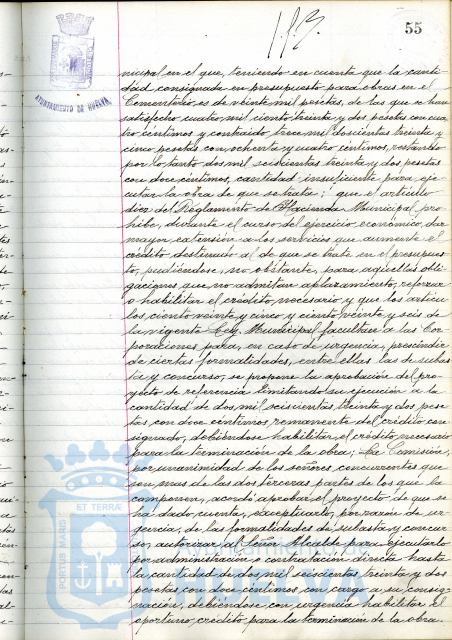 55
AYUNTAMIENTO DE HUELVA
nicipal en el que, teniendo en cuenta que la canti-
dad consignada en presupuesto para obras en el
Cementerio es de veinte mil pesetas, de las que se han
satisfecho cuatro mil ciento treinta y dos pesetas con cua-
tro céntimos y contraido trece mil doscientas treinta y
cinco pesetas con ochenta y cuatro céntimos, restando
por lo tanto dos mil seiscientas treinta y dos pesetas
con doce céntimos, cantidad insuficiente para eje-
cutar la obra de que se trata; que el artículo
diez del Reglamento de Hacienda Municipal pro-
hibe, durante el curso del ejercicio económico, dar
mayor extensión a los servicios que aumente el
crédito destinado al de que se trate en el presupues-
to, pudiéndose, no obstante, para aquellas obli-
gaciones que no admitan aplazamiento, reforzar
o habilitar el crédito necesario y que los artícu-
los ciento veinte y cinco y ciento veinte y seis de
la vigente Ley Municipal facultan a las Cor-
poraciones para, en caso de urgencia, prescindir
de ciertas formalidades, entre ellas las de subas-
ta y concurso, se propone la aprobación del pro-
yecto de referencia limitando su ejecución a la
cantidad de dos mil seiscientas treinta y dos pese-
tas, con doce céntimos, remanente del crédito con-
signado, debiéndose habilitar el crédito necesario
para la terminación de la obra; La Comisión,
por unanimidad de los señores concurrentes que
son mas de las dos terceras partes de los que la
componen, acordó aprobar el proyecto de que se
ha dado cuenta, exceptuarlo, por razón de ur-
gencia, de las formalidades de subasta y concur-
so, autorizar al Señor Alcalde para ejecutarlo
por administración o contratación directa hasta
la cantidad de dos mil seiscientas treinta y dos
pesetas con doce céntimos con cargo a su consig-
nación, debiéndose con urgencia habilitar el
oportuno crédito para la terminación de la obra.
ET TERRÆ
PORTUS MARIS
Ayuntamiento de